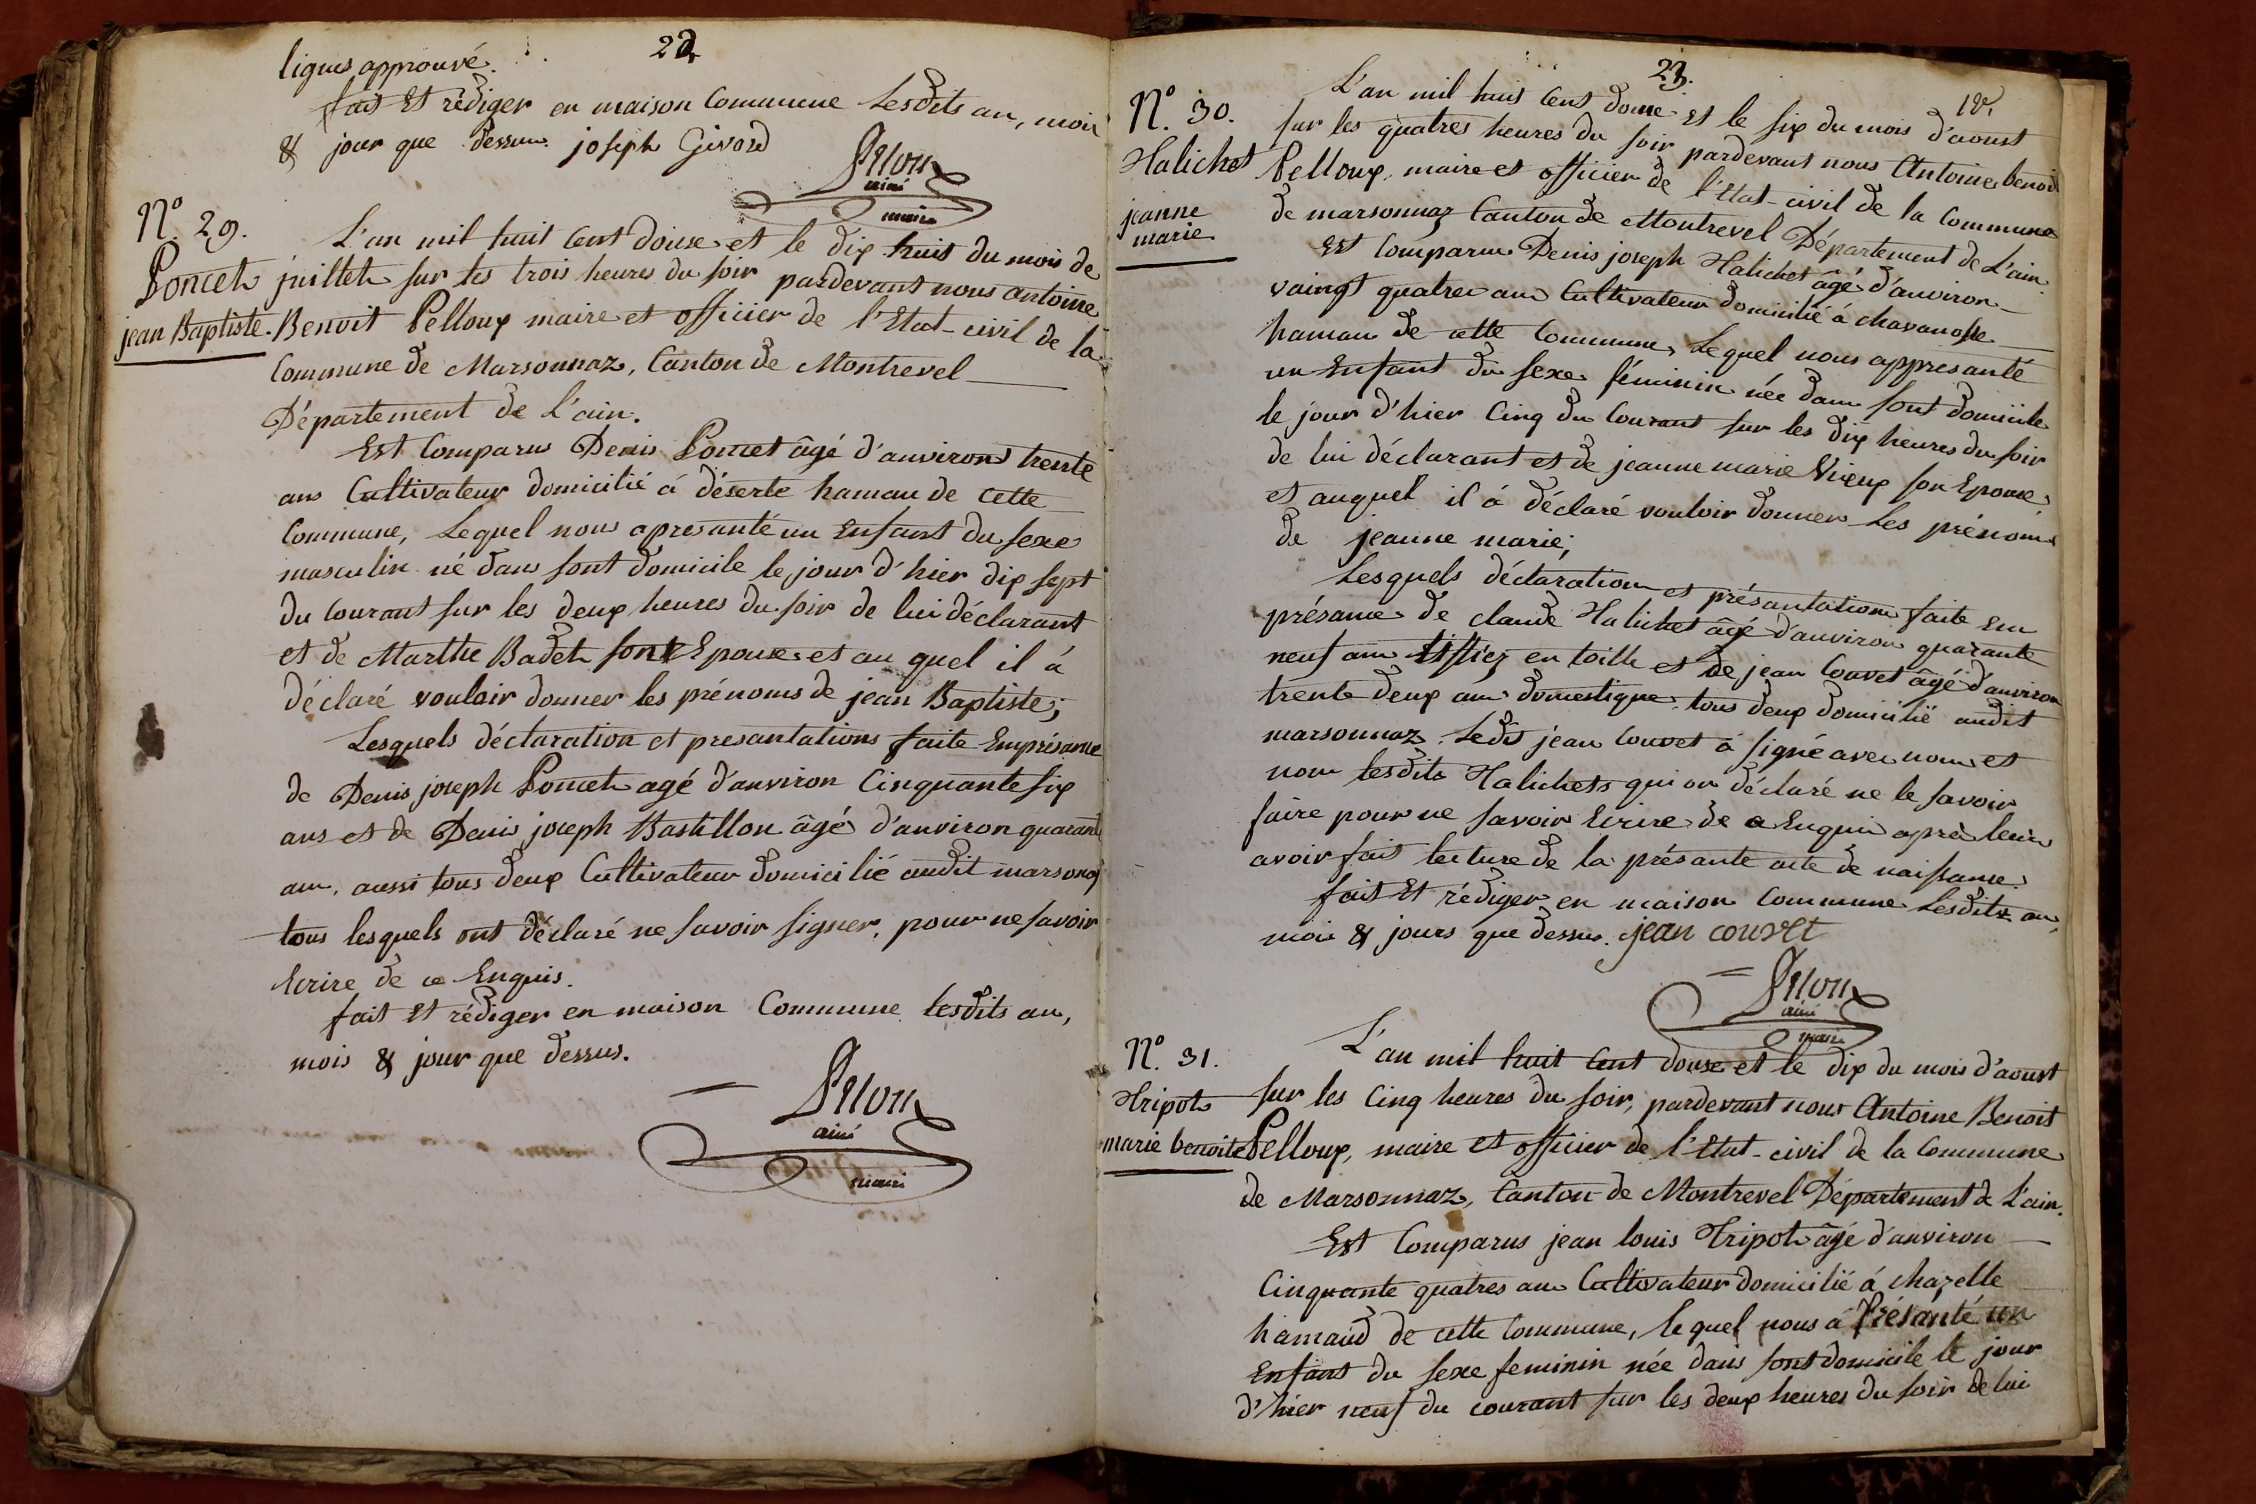 22
lignes approuvé.
fait Et rédiger en maison Commune Lesdits an, mois
& jour que dessus. joseph Girard
Pelloux
ainé
maire
N.º 29.
Poncet
jean Baptiste.
L'an mil huit Cent douse et le dix huit du mois de
juillet sur les trois heures du soir pardevant nous antoine
Benoit Pelloux maire et officier de l'Etat-civil de la
Commune de Marsonnaz, Canton de Montrevel
Département de L'ain.
Est Comparus Denis Poncet âgé d'anviron trente
ans Cultivateur domicilié á déserte hamau de cette
Commune, Lequel nous apresanté un Enfant du sexe
masculin né dans sont domicile le jour d'hier dix sept
du Courant sur les deux heures du soir de lui déclarant
et de Marthe Badet sont Epouse et au quel il á
déclaré vouloir donner les prénoms de jean Baptiste;
Lesquels déctaration et presantations faite Emprésance
de Denis joseph Poncet agé d'anviron Cinquante six
ans et de Denis joseph Bastillon âgé d'anviron quarante
ans, aussi tous deux Cultivateur domicilié audit marsonaz
tous lesquels ont déclaré ne savoir signer, pour ne savoir
Ecrire de ce Enquis.
fait Et rédiger en maison Commune lesdits an,
mois & jour que dessus.
Pelloux
ainé
maire
23.
N.º 30.
Halichet
jeanne
marie
L'an mil huit Cent douse et le six du mois d'aoust
sur les quatres heures du soir pardevant nous Antoine benoit
Pelloux, maire et officier de l'Etat-civil de la Commune
de marsonnaz Canton de Montrevel Département de L'ain.
Est Comparu Denis joseph Halichet âgé d'anviron
vaingt quatre ans Cultivateur domicilié á chavanosse
hamau de cette Commune, Lequel nous appresanté
un Enfant du sexe féminin née dans sont domicile
le jour d'hier Cinq du Courant sur les dix heures du soir
de lui déclarant et de jeanne marie Vieux son Epouse,
et auquel il á déclaré vouloir donner Les prénoms
de jeanne marie;
Lesquels déctaration et présantation faite Em
présance de claude Halichet âgé d'anviron quarante
neuf ans tissiez en toille et de jean Couvet âgé d'anviron
trente deux ans domestique tous deux domicilié audit
marsonnaz. Ledit jean Couvet á signé avec nous et
non lesdits Halichets qui on déclaré ne le savoir
faire pour ne savoir Ecrire de ce Enquis après leur
avoir fait lecture de la présante acte de naissance.
fait Et rédiger en maison Commune Lesdits an,
mois & jours que dessus. jean couvet
Pelloux
ainé
maire
N.º 31.
Tripot
marie benoite
L'an mil huit Cent douse et le dix du mois d'aoust
sur les Cinq heures du soir, pardevant nous Antoine Benoit
Pelloux, maire et officier de l'Etat-civil de la Commune
de Marsonnaz, Canton de Montrevel Département de L'ain.
Est Comparus jean louis Tripot âgé d'anviron
Cinquante quatres ans Cultivateur domicilié á chazelle
hamaud de cette Commune, lequel nous á Présanté un
Enfant du sexe feminin née dans sont domicile le jour
d'hier neuf du courant sur les deux heures du soir de lui